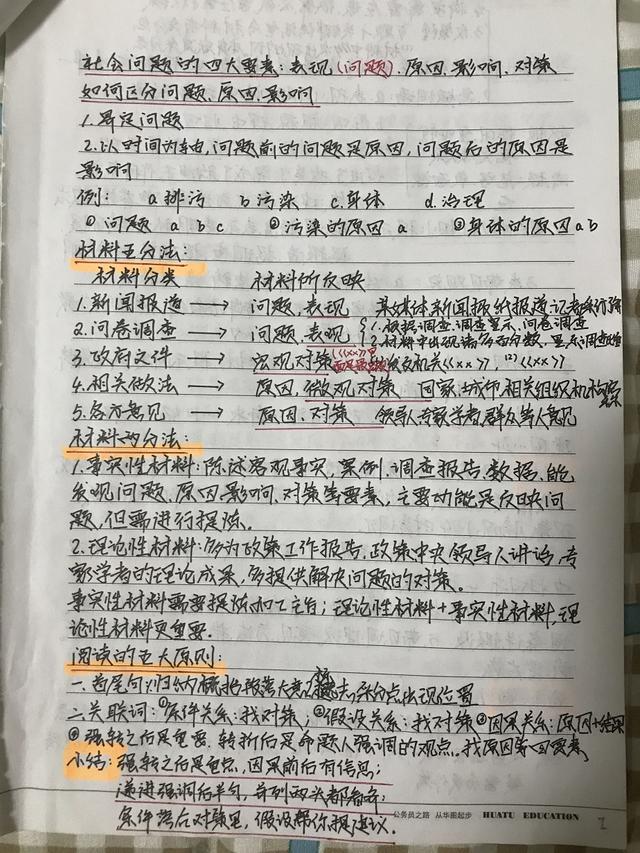 社会问题的四大要素：表现（问题）.原因.影响.对策
如何区分问题.原因.影响
1.界定问题
2.以时间为轴,问题前的问题是原因,问题后的原因是
影响
例： a 排污 b 污染 c.身体 d.治理
① 问题 a b c ②污染的原因 a ③身体的原因 a b
材料五分法：
材料分类 材料所反映
1.新闻报道 → 问题.表现 某媒体新闻报纸报道记者
2.问卷调查 → 问题.表现 1.根据调查.调查显示.问卷调查
2.材料中出现诸多百分数,
3.政府文件 → 宏观对策 《xx》 机关《xx》, (2)《xx》
4.相关做法 → 原因,微观对策 国家.城市.相关组织机构
5.各方意见 → 原因.对策 领导人专家学者,群众等人意见
材料两分法：
1.事实性材料:陈述客观事实,案例.调查报告.数据.能
发现问题.原因.影响.对策等要素，主要功能是反映问
题,但需进行提炼.
2.理论性材料:多为政策工作报告.政策中央领导人讲话,专
家学者的理论成果,多提供解决问题的对策。
事实性材料需要提炼加工主旨；理论性材料+事实性材料,理
论性材料更重要.
阅读的五大原则:
一.首尾句:归纳概括段落大意
二.关联词:①条件关系:找对策；②假设关系:找对策③因果关系:原因+结果
④强转之后是重要.转折后是命题人强调的观点.找原因等四要素
小结:强转之后是重点,因果前后有信息；
递进强调后半句,并列两头都备齐;
条件落后对策里,假设帮你提建议.
公务员之路 从华图起步 HUATU EDUCATION